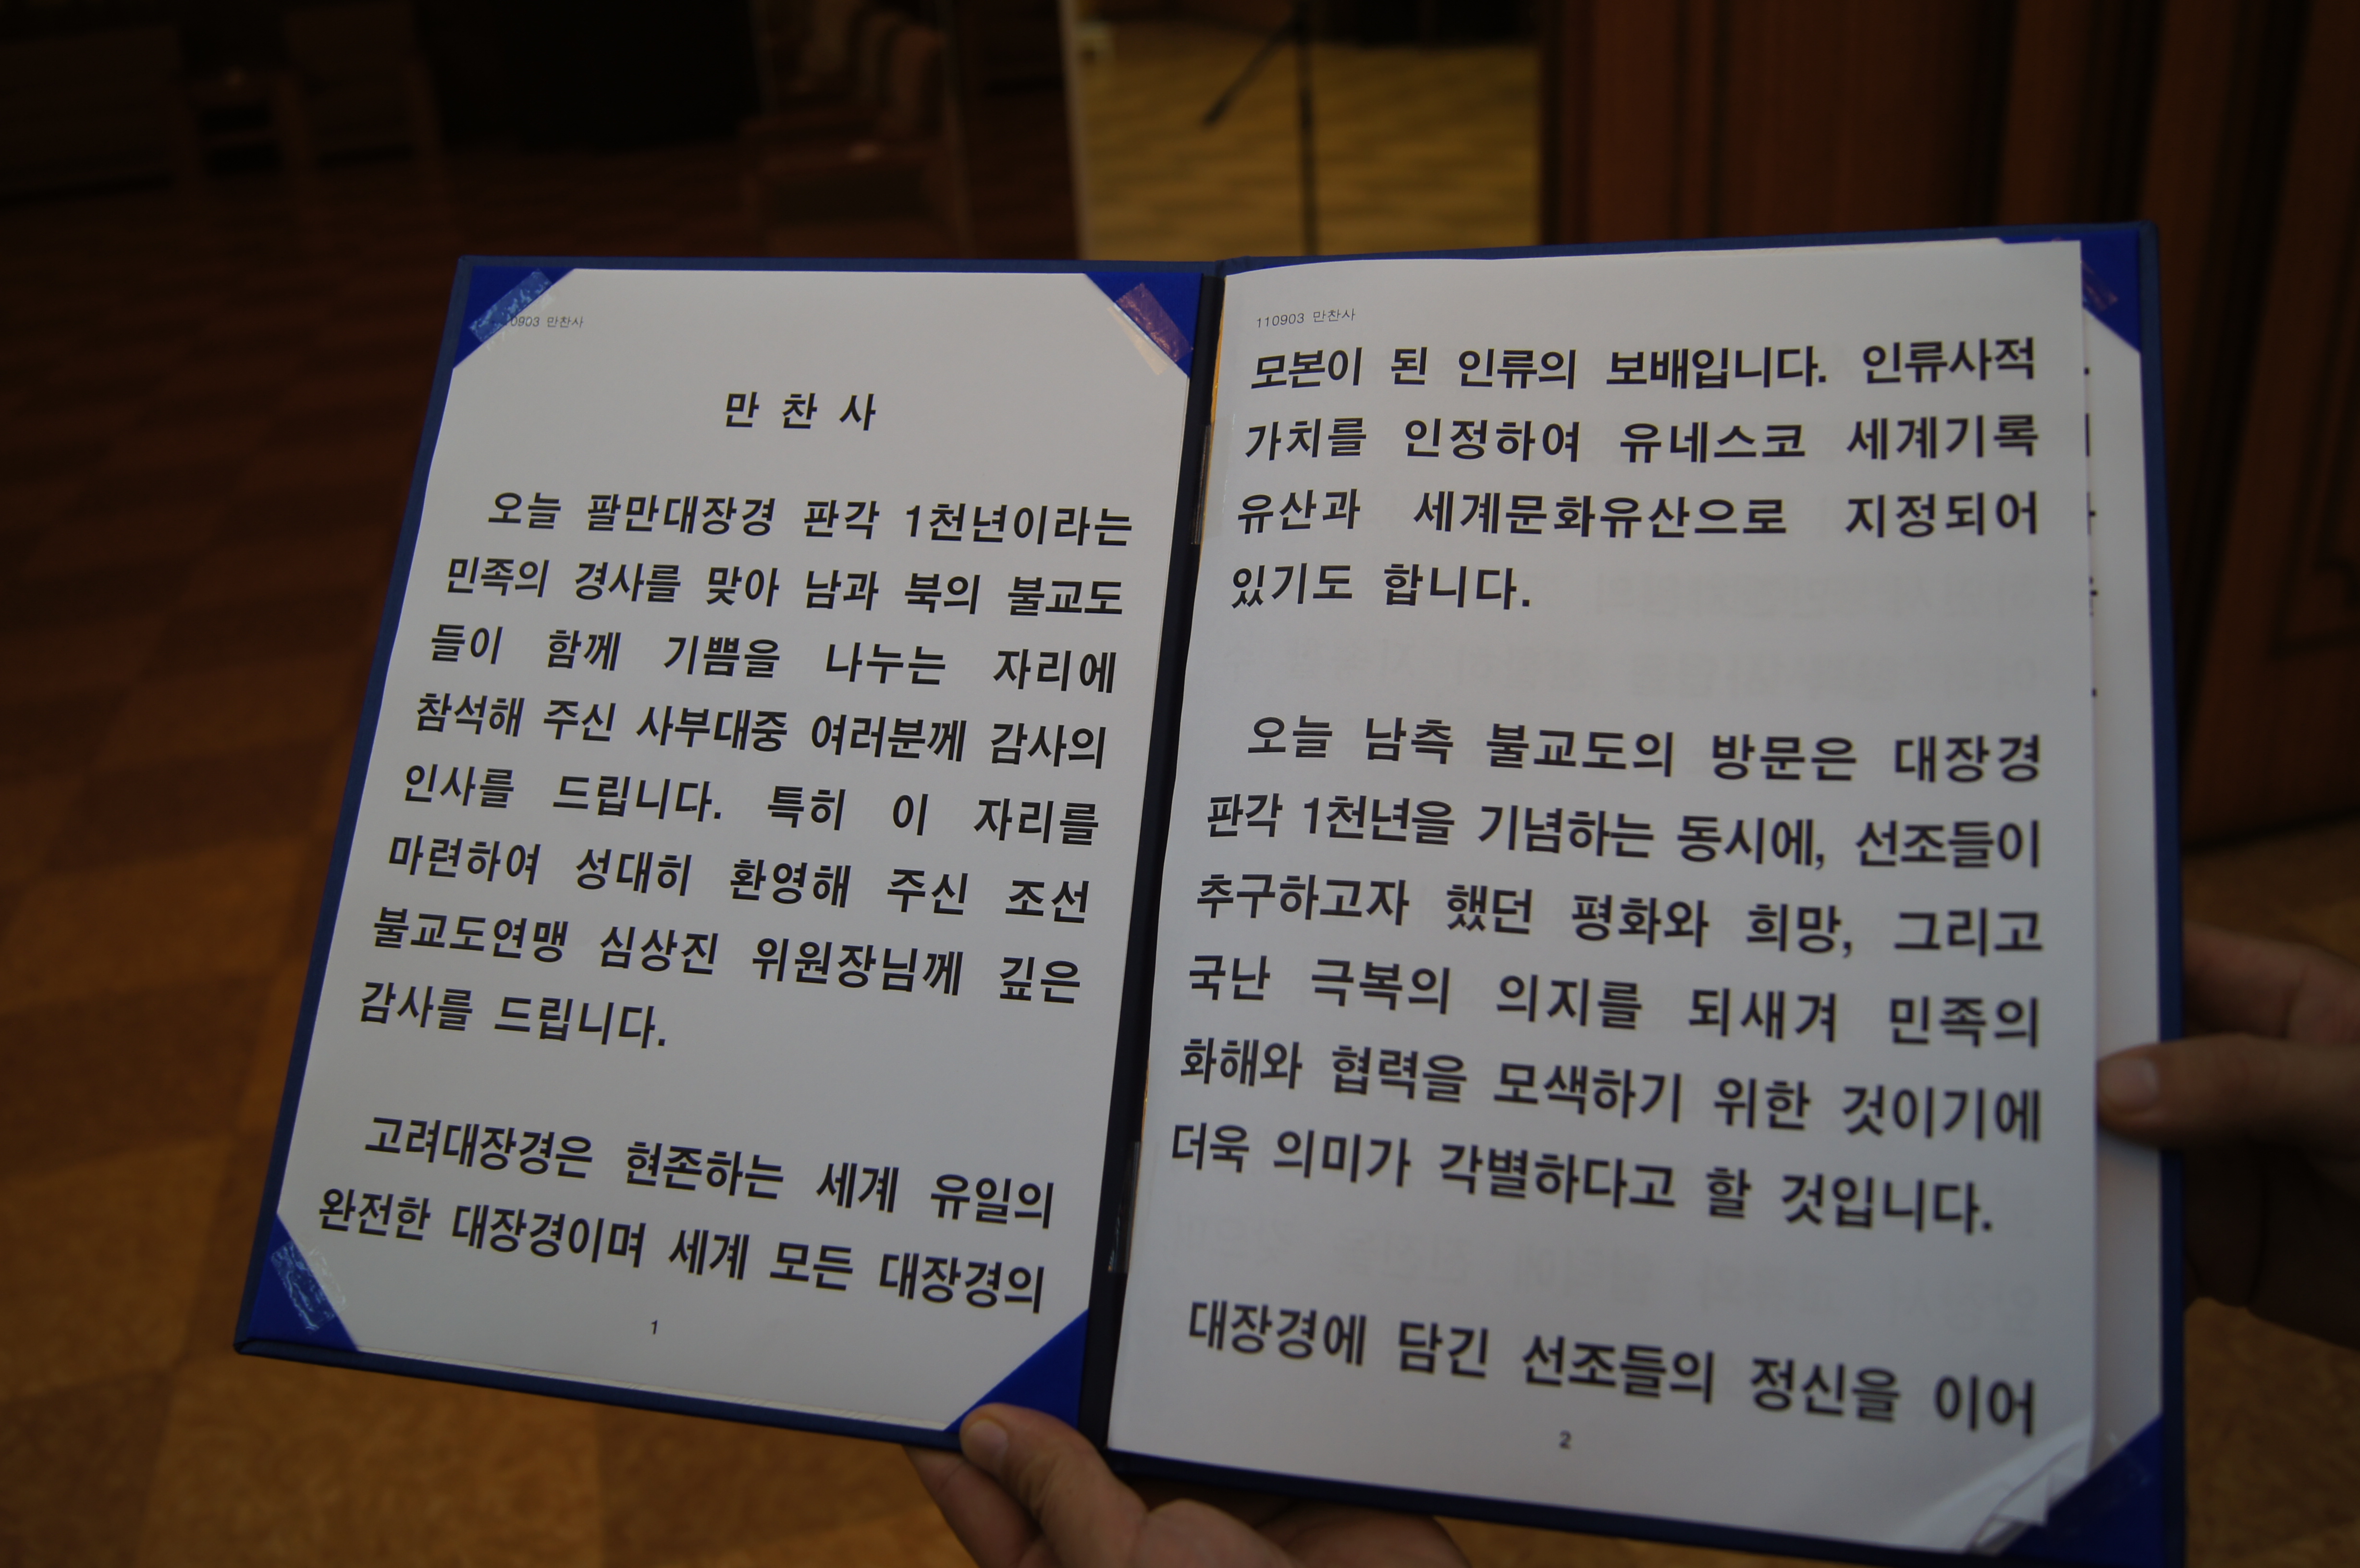 0903 만찬사
만 찬 사
오늘 팔만대장경 판각 1천년이라는
민족의 경사를 맞아 남과 북의 불교도
들이 함께 기쁨을 나누는 자리에
참석해 주신 사부대중 여러분께 감사의
인사를 드립니다. 특히 이 자리를
마련하여 성대히 환영해 주신 조선
불교도연맹 심상진 위원장님께 깊은
감사를 드립니다.
고려대장경은 현존하는 세계 유일의
완전한 대장경이며 세계 모든 대장경의
1
110903 만찬사
모본이 된 인류의 보배입니다. 인류사적
가치를 인정하여 유네스코 세계기록
유산과 세계문화유산으로 지정되어
있기도 합니다.
오늘 남측 불교도의 방문은 대장경
판각 1천년을 기념하는 동시에, 선조들이
추구하고자 했던 평화와 희망, 그리고
국난 극복의 의지를 되새겨 민족의
화해와 협력을 모색하기 위한 것이기에
더욱 의미가 각별하다고 할 것입니다.
대장경에 담긴 선조들의 정신을 이어
2